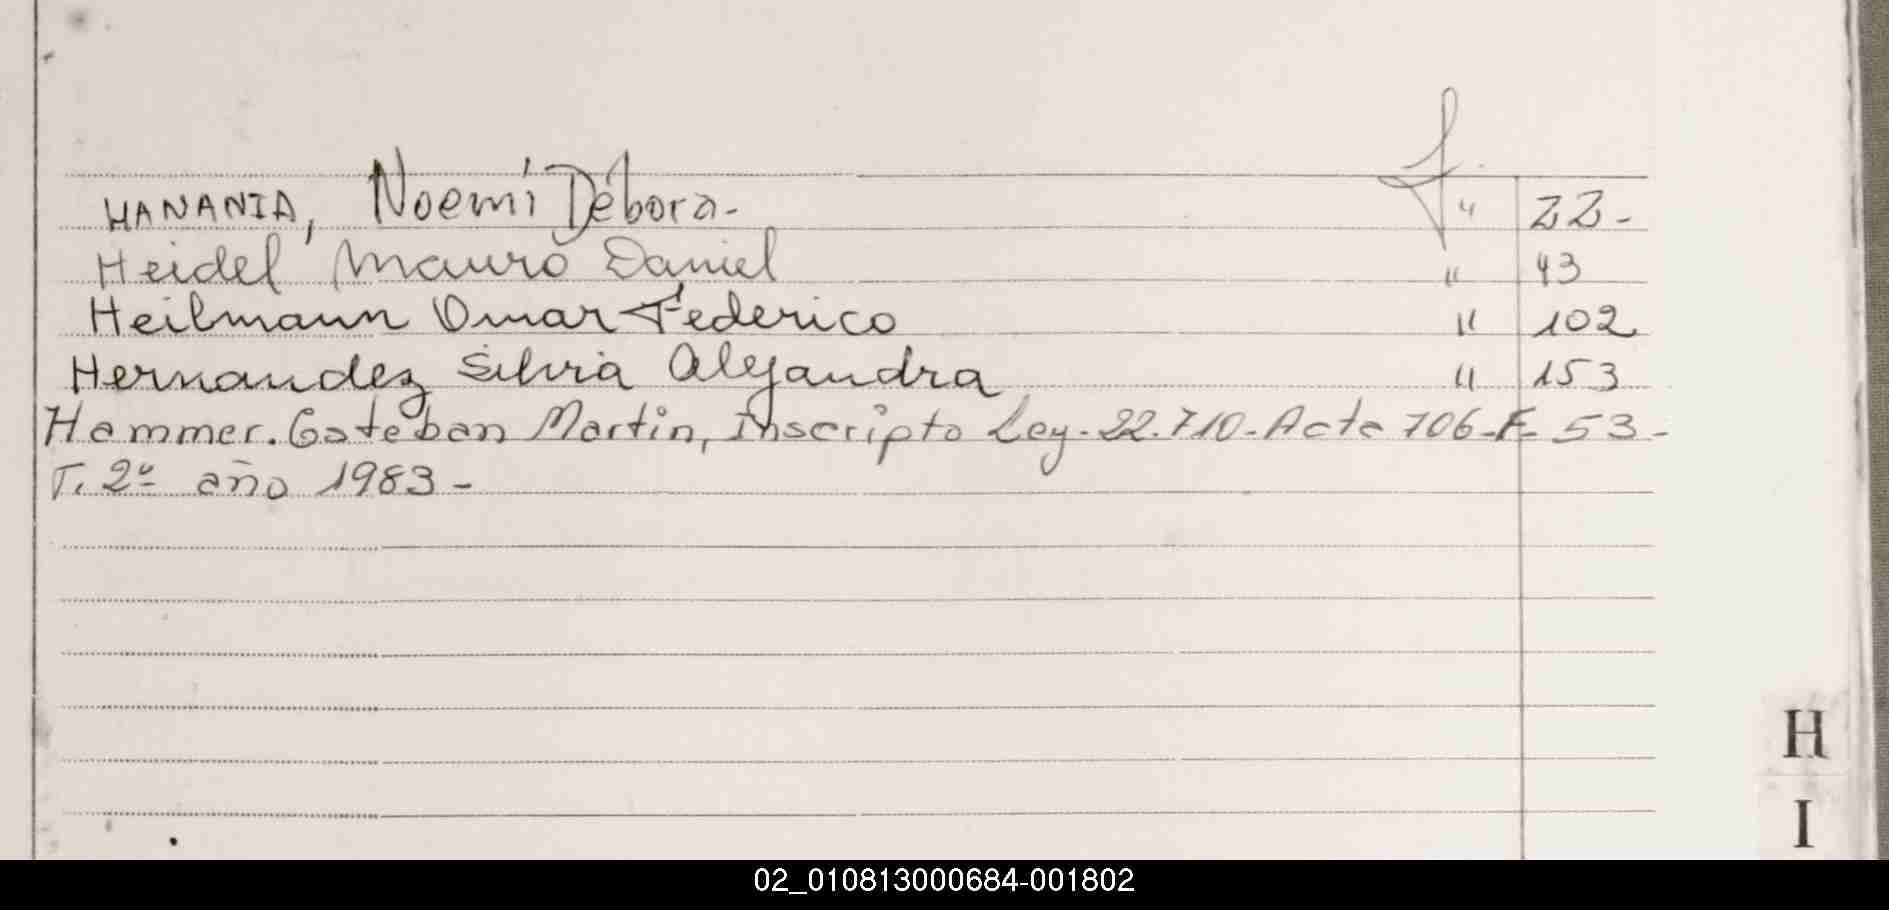 f.
HANANIA, Noemí Débora- " 22-
Heidel Mauro Daniel " 43
Heilmann Omar Federico " 102
Hernandez Silvia Alejandra " 153
Hammer. Esteban Martin, Inscripto Ley-22.710-Acta 706-F- 53-
T. 2º año 1983-
H
I
02_010813000684-001802